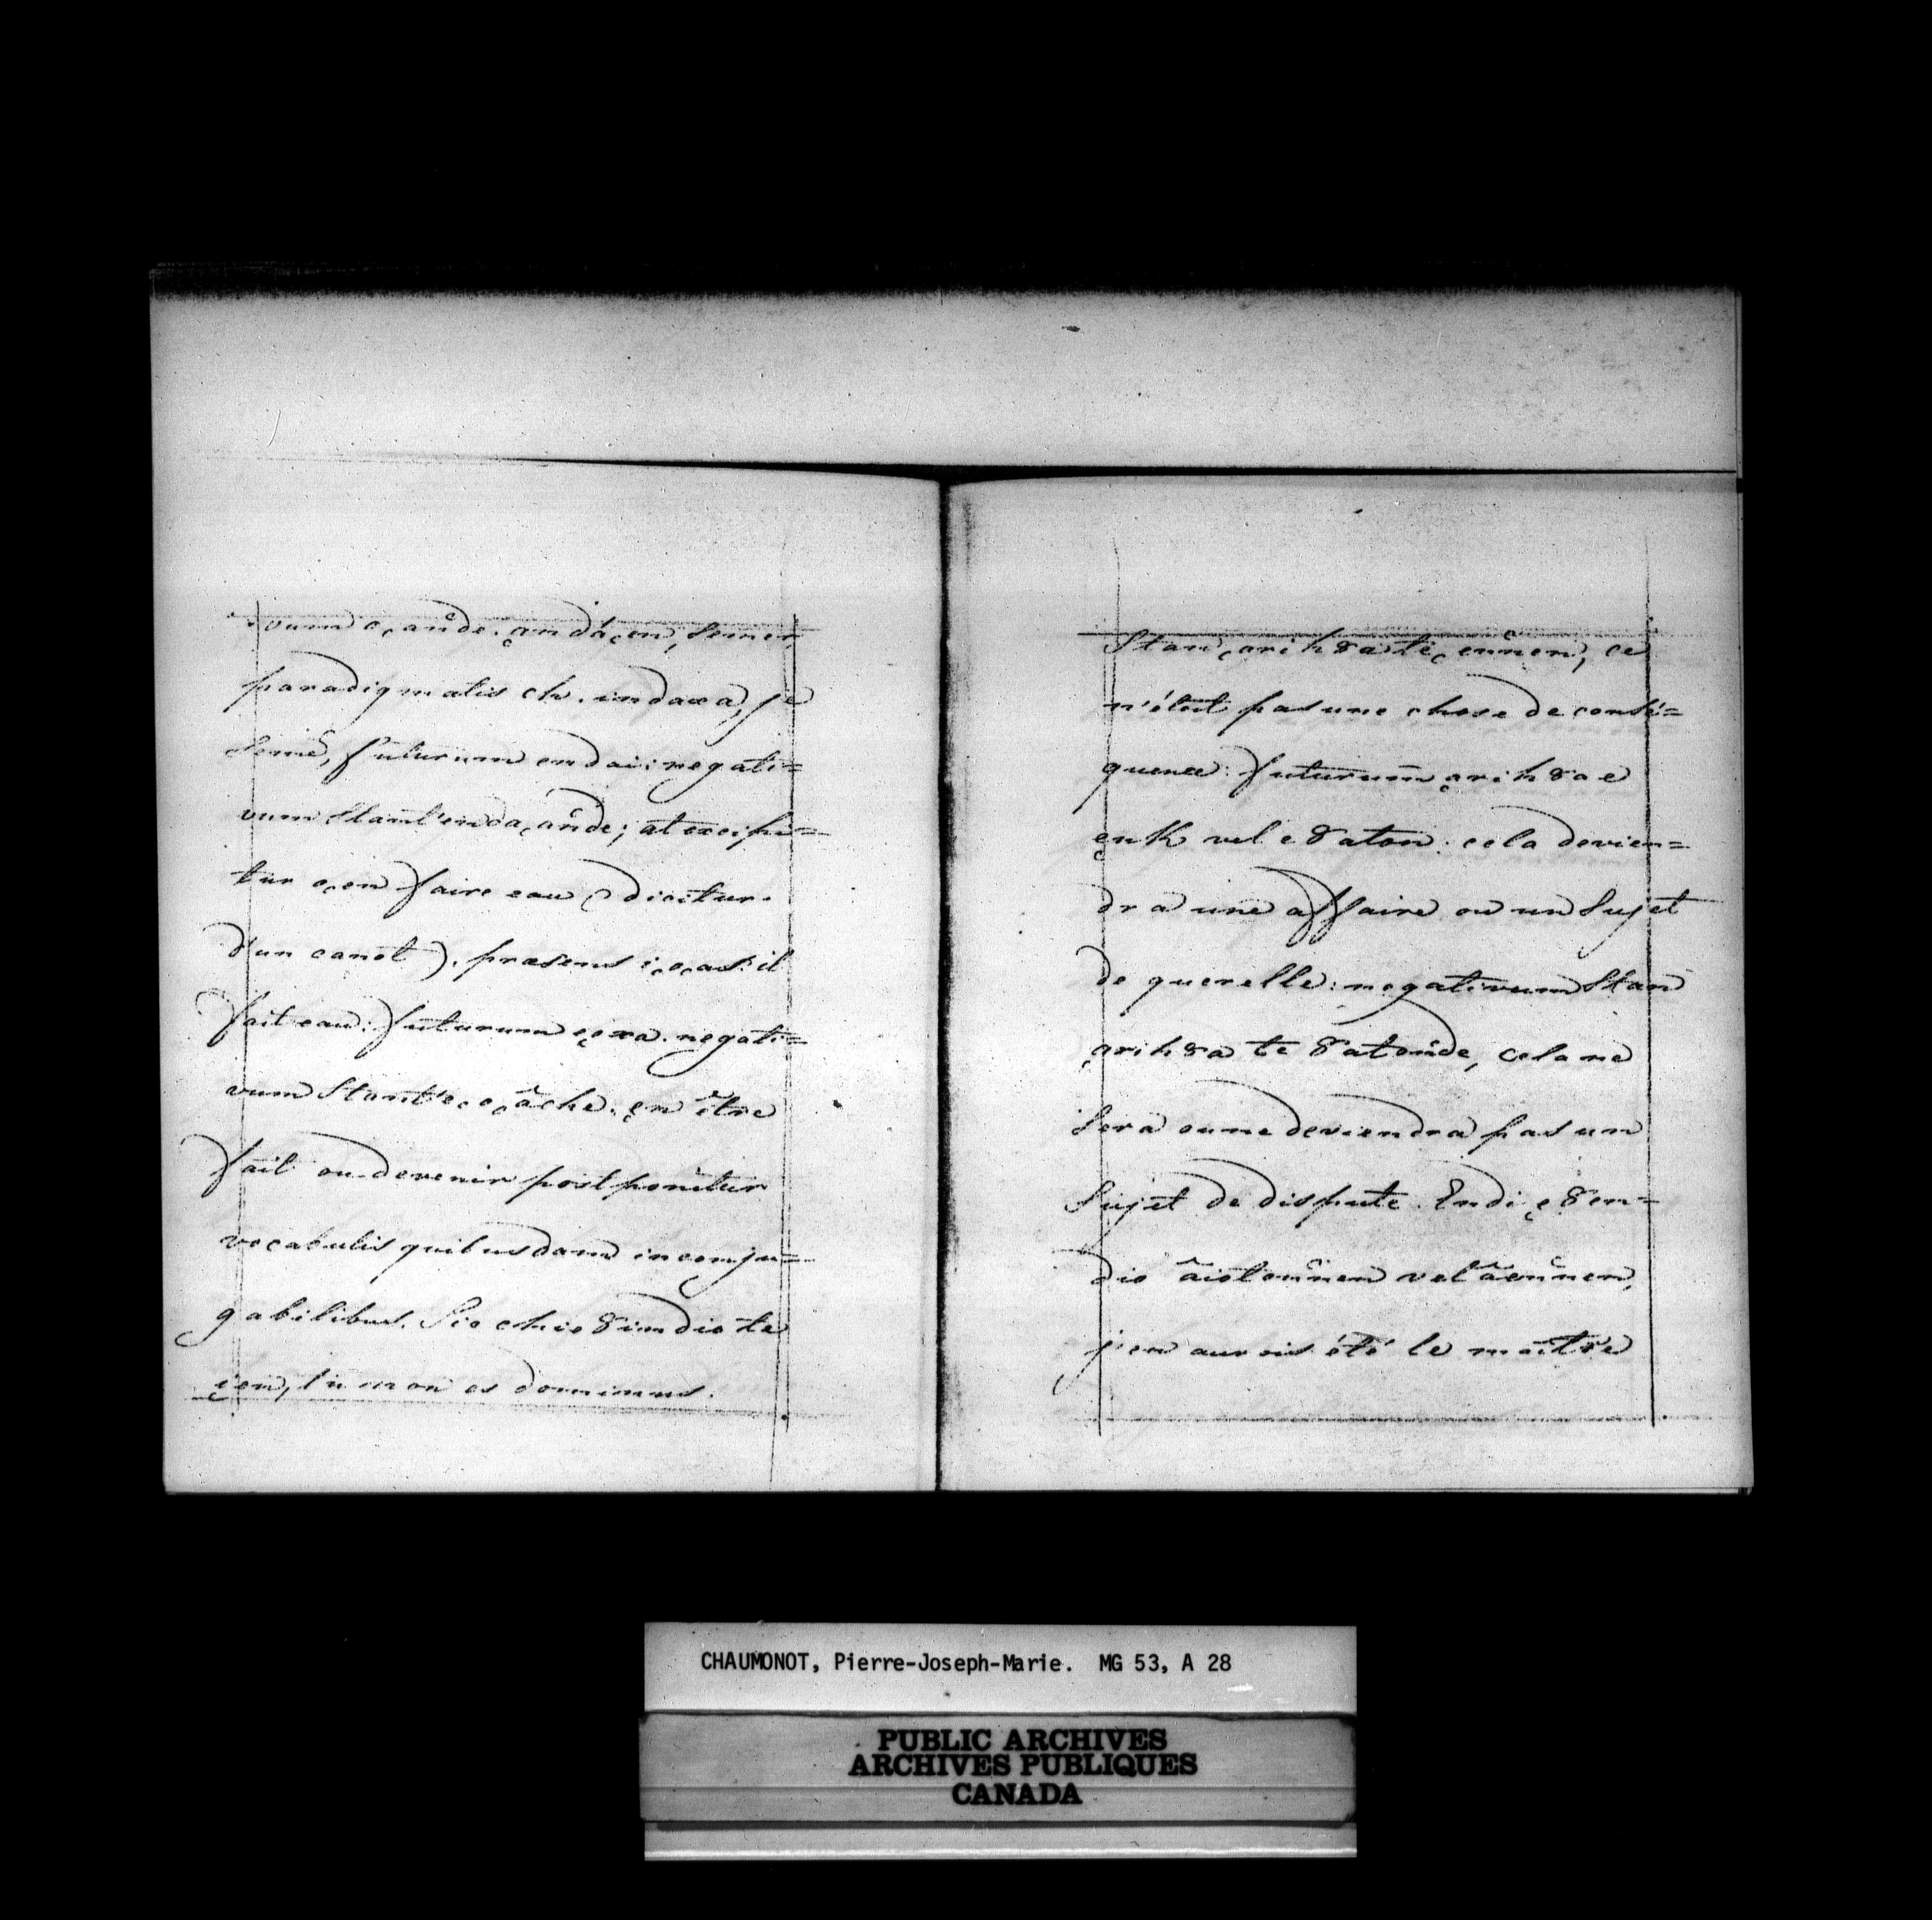 vum o,ande. ,andá,en, semer,
paradigmatis ch. endaxa, je
semé, futurum endai: negati=
vum stant'enda,ande; at excipi=
tur o,en faire eau (dicitur.
d'un canot). præsens i,o,as: il
fait eau: futurum e,exa. negati=
vum stant'e,o,âche. ,en être
fait ou devenir postponitur
vocabulis quibusdam inconju=
gabilibus. Sic chie8endio te
,en, tu non es dominus.
Stan ,arih8a te,ennen, ce
n'étoit pas une chose de consé=
quence: futurum ,arih8a e
,enk vel e8aton: cela devien=
dra une affaire ou un sujet
de querelle: negativum stan
,arih8a te 8atonde, cela ne
sera ou ne deviendra pas un
sujet de dispute. Endi ,e8en=
dio âiotonnen vel âennen,
j'en aurois été le maître
CHAUMONOT, Pierre-Joseph-Marie. MG 53, A 28
PUBLIC ARCHIVES
ARCHIVES PUBLIQUES
CANADA